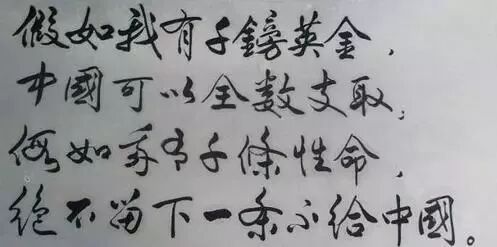 假如我有千鎊英金，
中國可以全數支取；
假如我有千條性命，
絕不留下一条不給中國。